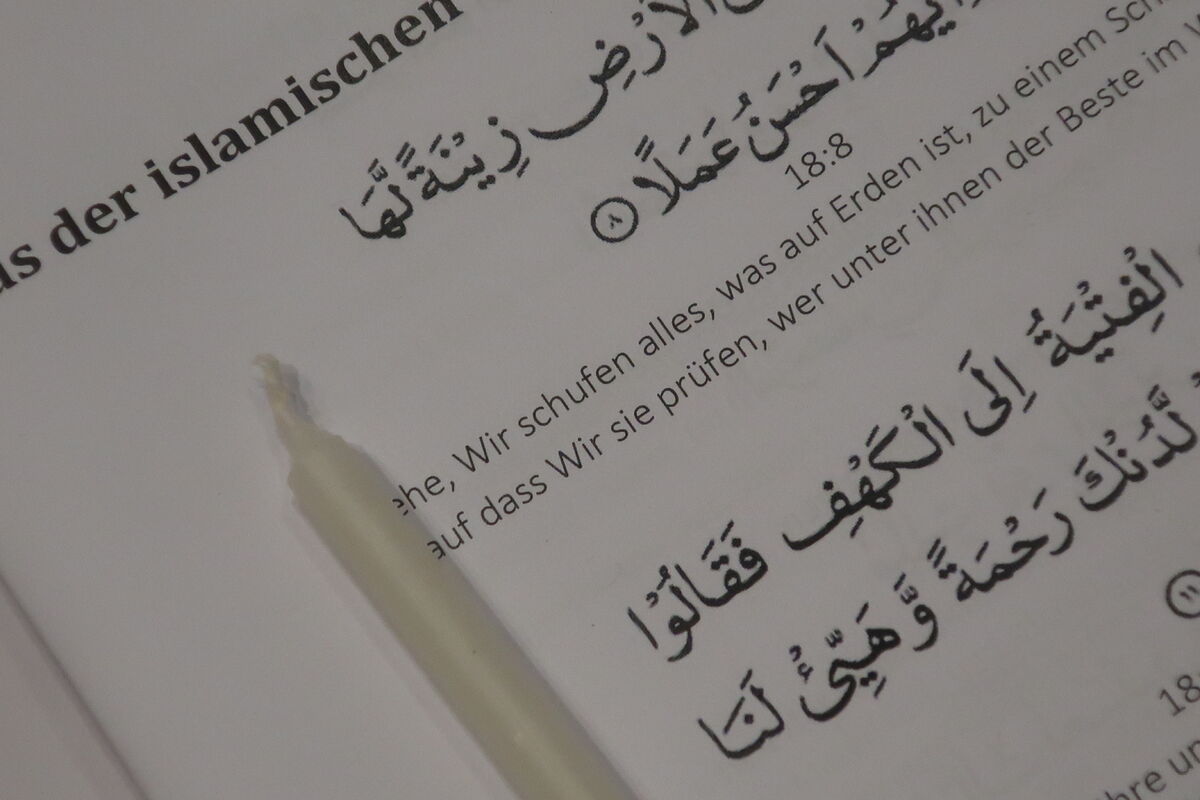 der islamischen
الْاَرْضِ زِيْنَةً لَّهَا
اَيُّهُمْ اَحْسَنُ عَمَلًا ۸
18:8
Wir schufen alles, was auf Erden ist, zu einem
auf dass Wir sie prüfen, wer unter ihnen der Beste im
الْفِتْيَةُ اِلَى الْكَهْفِ فَقَالُوْا
لَّدُنْكَ رَحْمَةً وَّهَيِّئْ لَنَا
۱۱